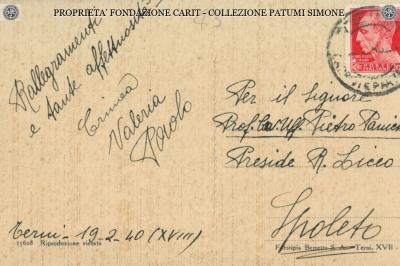 PROPRIETA' FONDAZIONE CARIT - COLLEZIONE PATUMI SIMONE
Rallegramenti
e tante affettuosità
Ermea
Valeria
Paolo
Terni - 19-2-40 (XVIII)
15608 Riproduzione vietata
Per il Signore
Prof. Pietro
Preside R. Liceo
Spoleto
Fototipia S. A. - Terni, XVII